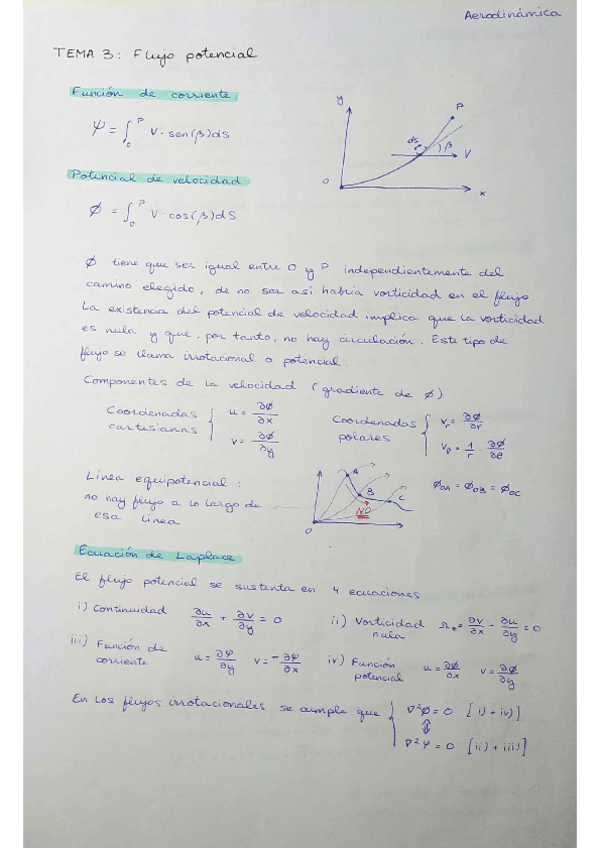 Aerodinámica
TEMA 3: Flujo potencial
Función de corriente
ψ = ∫₀ᴾ V · sen(β) dS
y
P
ds
β
V
O
x
Potencial de velocidad
ϕ = ∫₀ᴾ V · cos(β) dS
ϕ tiene que ser igual entre O y P independientemente del
camino elegido, de no ser así habría vorticidad en el flujo.
La existencia del potencial de velocidad implica que la vorticidad
es nula y que, por tanto, no hay circulación. Este tipo de
flujo se llama irrotacional o potencial.
Componentes de la velocidad (gradiente de ϕ)
Coordenadas cartesianas { u = ∂ϕ/∂x
v = ∂ϕ/∂y
Coordenadas polares { vᵣ = ∂ϕ/∂r
v_θ = 1/r · ∂ϕ/∂θ
Línea equipotencial :
no hay flujo a lo largo de
esa línea
A
B
C
NO
O
ϕ_OA = ϕ_OB = ϕ_OC
Ecuación de Laplace
El flujo potencial se sustenta en 4 ecuaciones
i) Continuidad ∂u/∂x + ∂v/∂y = 0
ii) Vorticidad nula = ∂v/∂x - ∂u/∂y = 0
iii) Función de corriente u = ∂ψ/∂y v = -∂ψ/∂x
iv) Función potencial u = ∂ϕ/∂x v = ∂ϕ/∂y
En los flujos irrotacionales se cumple que { ∇²ϕ = 0 [i) + iv)]
⇕
∇²ψ = 0 [ii) + iii)]